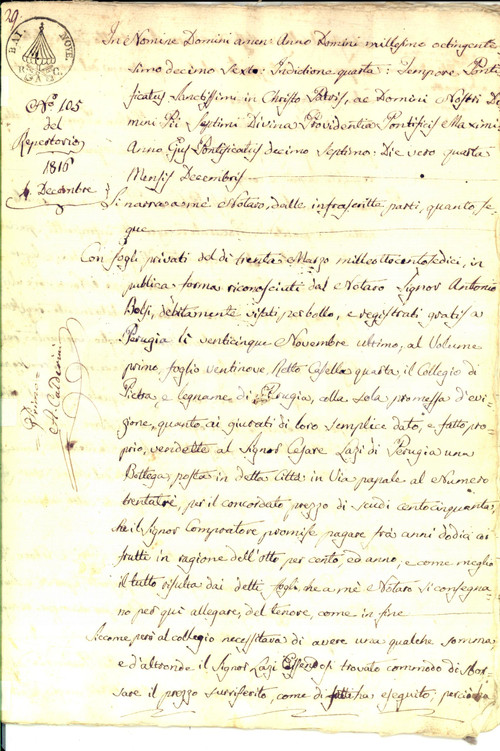 29.
BAI. NOVE.
R. C.
N.° 105
del
Repertorio
1816
4 Decembre
In Nomine Domini amen: Anno Domini millesimo octingente
simo decimo sexto: Indictione quarta: Tempore Ponti
ficatus Sanctissimi in Christo Patris, ac Domini Nostri Do
mini Pii Septimi Divina Providentia Pontificis Maximi
Anno Ejus Pontificatus decimo septimo: Die vero quarta
Mensis Decembris
Si narra a mè Notaro, dalle infrascritte parti, quanto se
gue
Con fogli privati del dì trenta Marzo milleottocentosedici, in
publica forma riconosciuti dal Notaro Signor Antonio
Bolsi, debitamente visati per bollo, e registrati gratis a
Perugia li venticinque Novembre ultimo, al Volume
primo, foglio ventinove, Retto Casella quarta, il Collegio di
Pietra, e legname di Perugia, alla sola promessa d'evi
zione, quanto ai giurati di loro semplice dato, e fatto pro
prio, vendette al Signor Cesare Lasi di Perugia una
Bottega posta in detta Città in Via papale al Numero
trentatrè, per il concordato prezzo di scudi centocinquanta,
che il Signor Compratore promise pagare frà anni dodici coi
frutti in ragione dell'otto per cento, ed anno, e come meglio
il tutto risulta dai detti fogli, che a mè Notaro si consegna
no per qui allegare, del tenore, come in fine
Siccome però al collegio necessitava di avere una qualche somma
e d'altronde il Signor Lasi essendosi trovato commodo di sbor
sare il prezzo surriferito, come di fatti ha eseguito, perciò